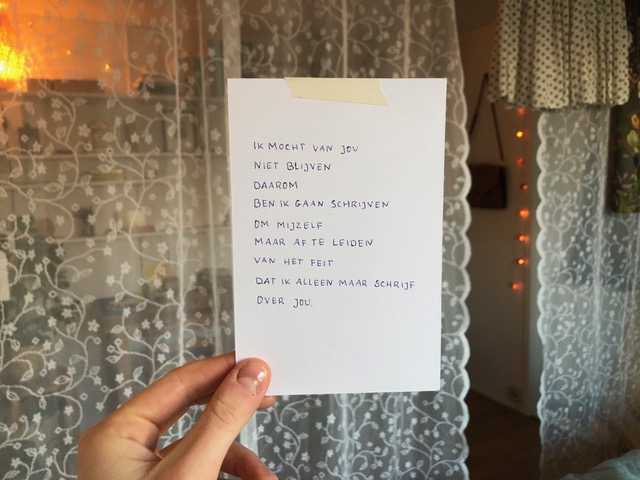 IK MOCHT VAN JOU
NIET BLIJVEN
DAAROM
BEN IK GAAN SCHRIJVEN
OM MIJZELF
MAAR AF TE LEIDEN
VAN HET FEIT
DAT IK ALLEEN MAAR SCHRIJF
OVER JOU.